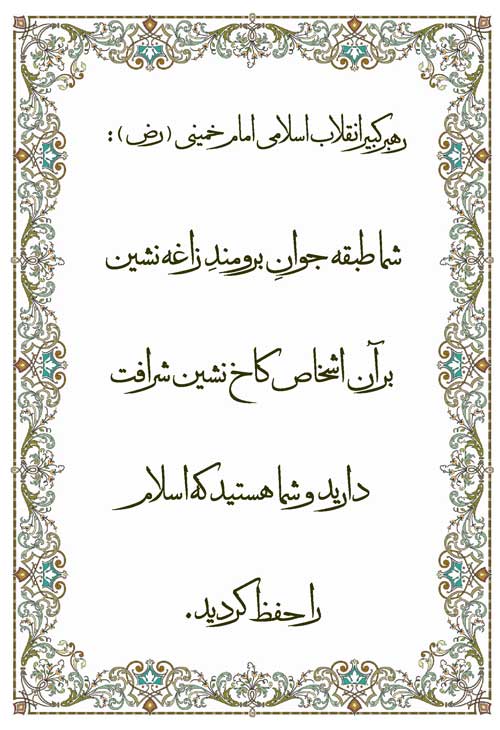 رهبر کبیر انقلاب اسلامی امام خمینی (رض):
شما طبقه جوانِ برومندِ زاغه نشین
بر آن اشخاص کاخ نشین شرافت
دارید و شما هستید که اسلام
را حفظ کردید.